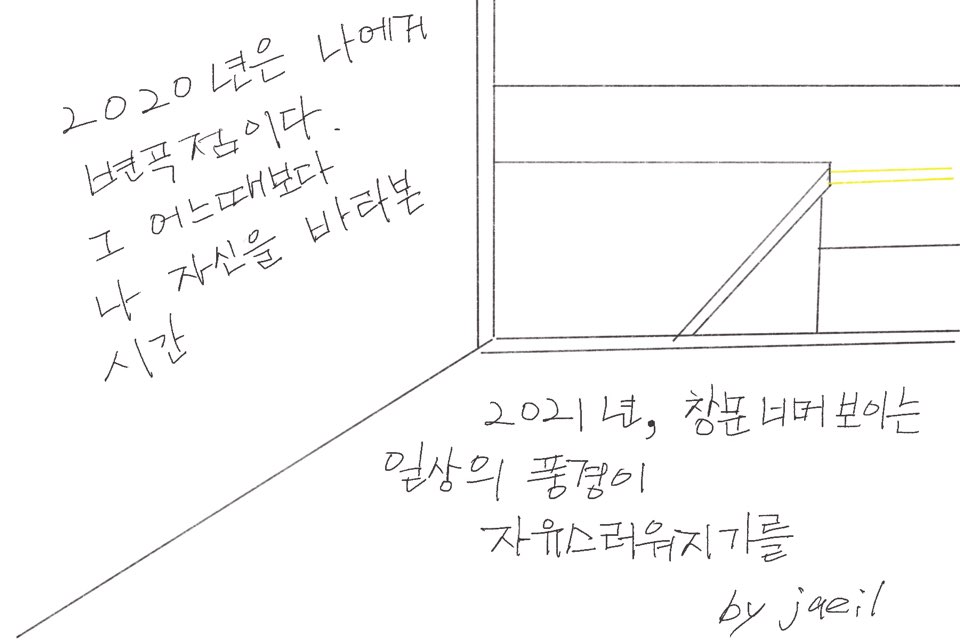 2020년은 나에게
변곡점이다.
그 어느때보다
나 자신을 바라본
시간
2021년, 창문너머 보이는
일상의 풍경이
자유스러워지기를
by jaeil